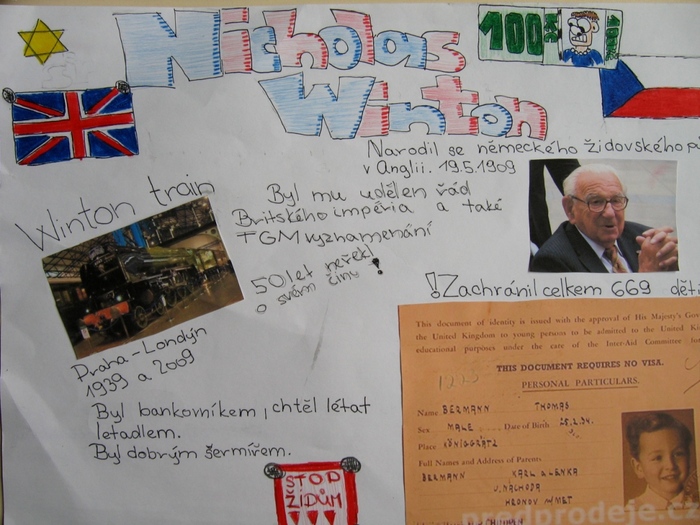 Nicholas
Winton
100
100Kč
Narodil se německého židovského pů
v Anglii. 19.5.1909
Winton train
Byl mu udělen řád
Britského impéria a také
TGM vyznamenání
50 let neřekl
o svém činu!
!Zachránil celkem 669 dětí
Praha-Londýn
1939 a 2009
Byl bankovníkem, chtěl létat
letadlem.
Byl dobrým šermířem.
STOP
ŽIDŮM
This document of identity is issued with the approval of His Majesty's Gov
the United Kingdom to young persons to be admitted to the United K
educational purposes under the care of the Inter-Aid Committee for
THIS DOCUMENT REQUIRES NO VISA.
PERSONAL PARTICULARS.
Name BERMANN THOMAS
Sex MALE Date of Birth 25.2.34.
Place KÖNIGGRÄTZ
Full Names and Address of Parents
BERMANN KARL & LENKA
V. NÁCHODA
HRONOV N/MET
predprodeje.cz